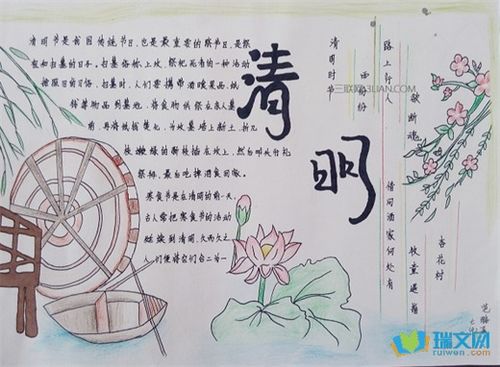 清明节是我国传统节日,也是最重要的祭节日,是祭
祖和扫墓的日子。扫墓俗称上坟,祭祀死者的一种活动
扫墓时,人们要携带酒食果品,纸
钱等物品到墓地,将食物供祭在亲人墓
前,再将纸钱焚化,为坟墓培上新土,折几
枝嫩绿的新枝插在坟上,然后叩头行礼
祭拜,最后吃掉酒食回家。
寒食节是在清明的前一天,
古人常把寒食节的活动
延续到清明,久而久之,
人们便将它们合二为一
清明
清明时节
雨纷纷
路上行人
欲断魂
借问酒家何处有
牧童遥指
杏花村
三联网3LIAN.COM
瑞文网
ruiwen.com